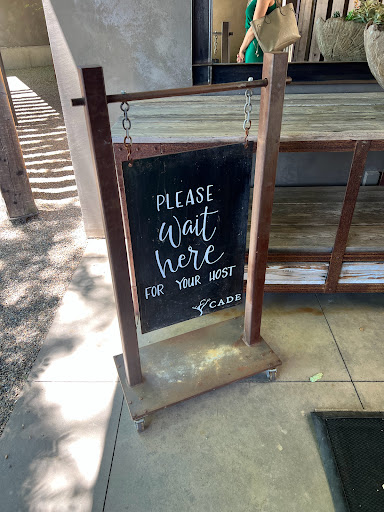 PLEASE
wait
here
FOR YOUR HOST
CADE